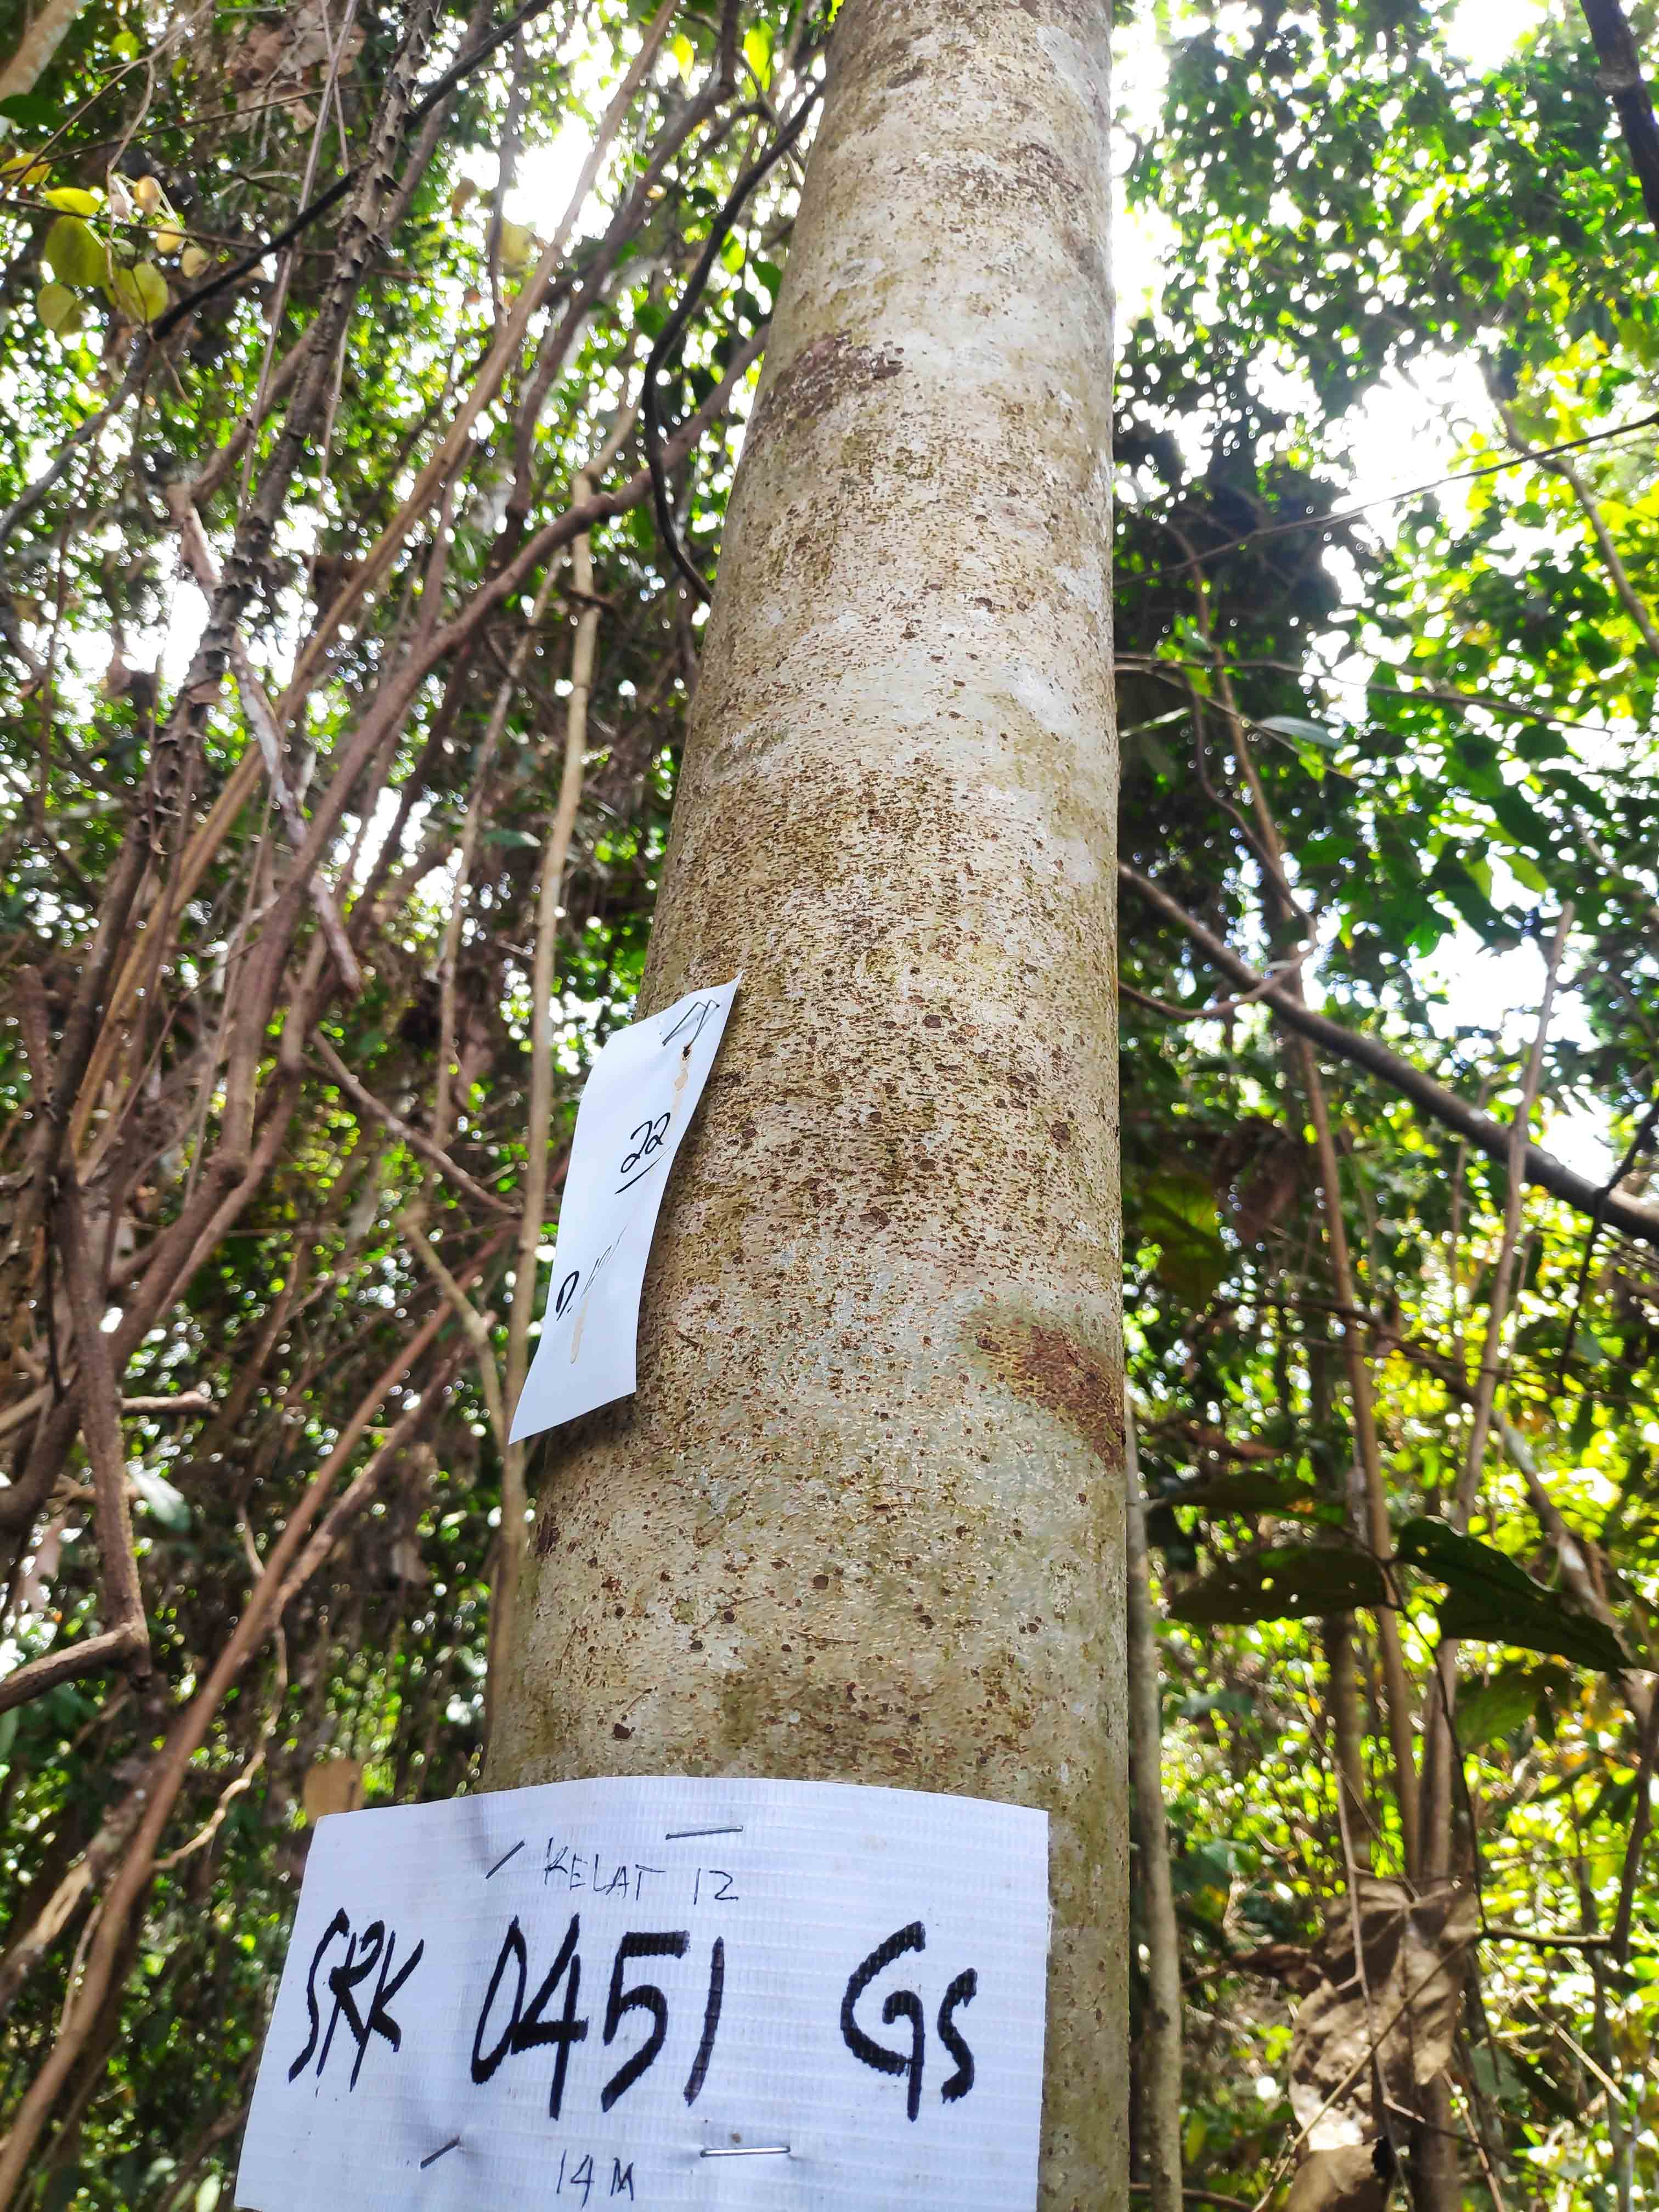 22
KELAT 12
SRK 0451 GS
14 M